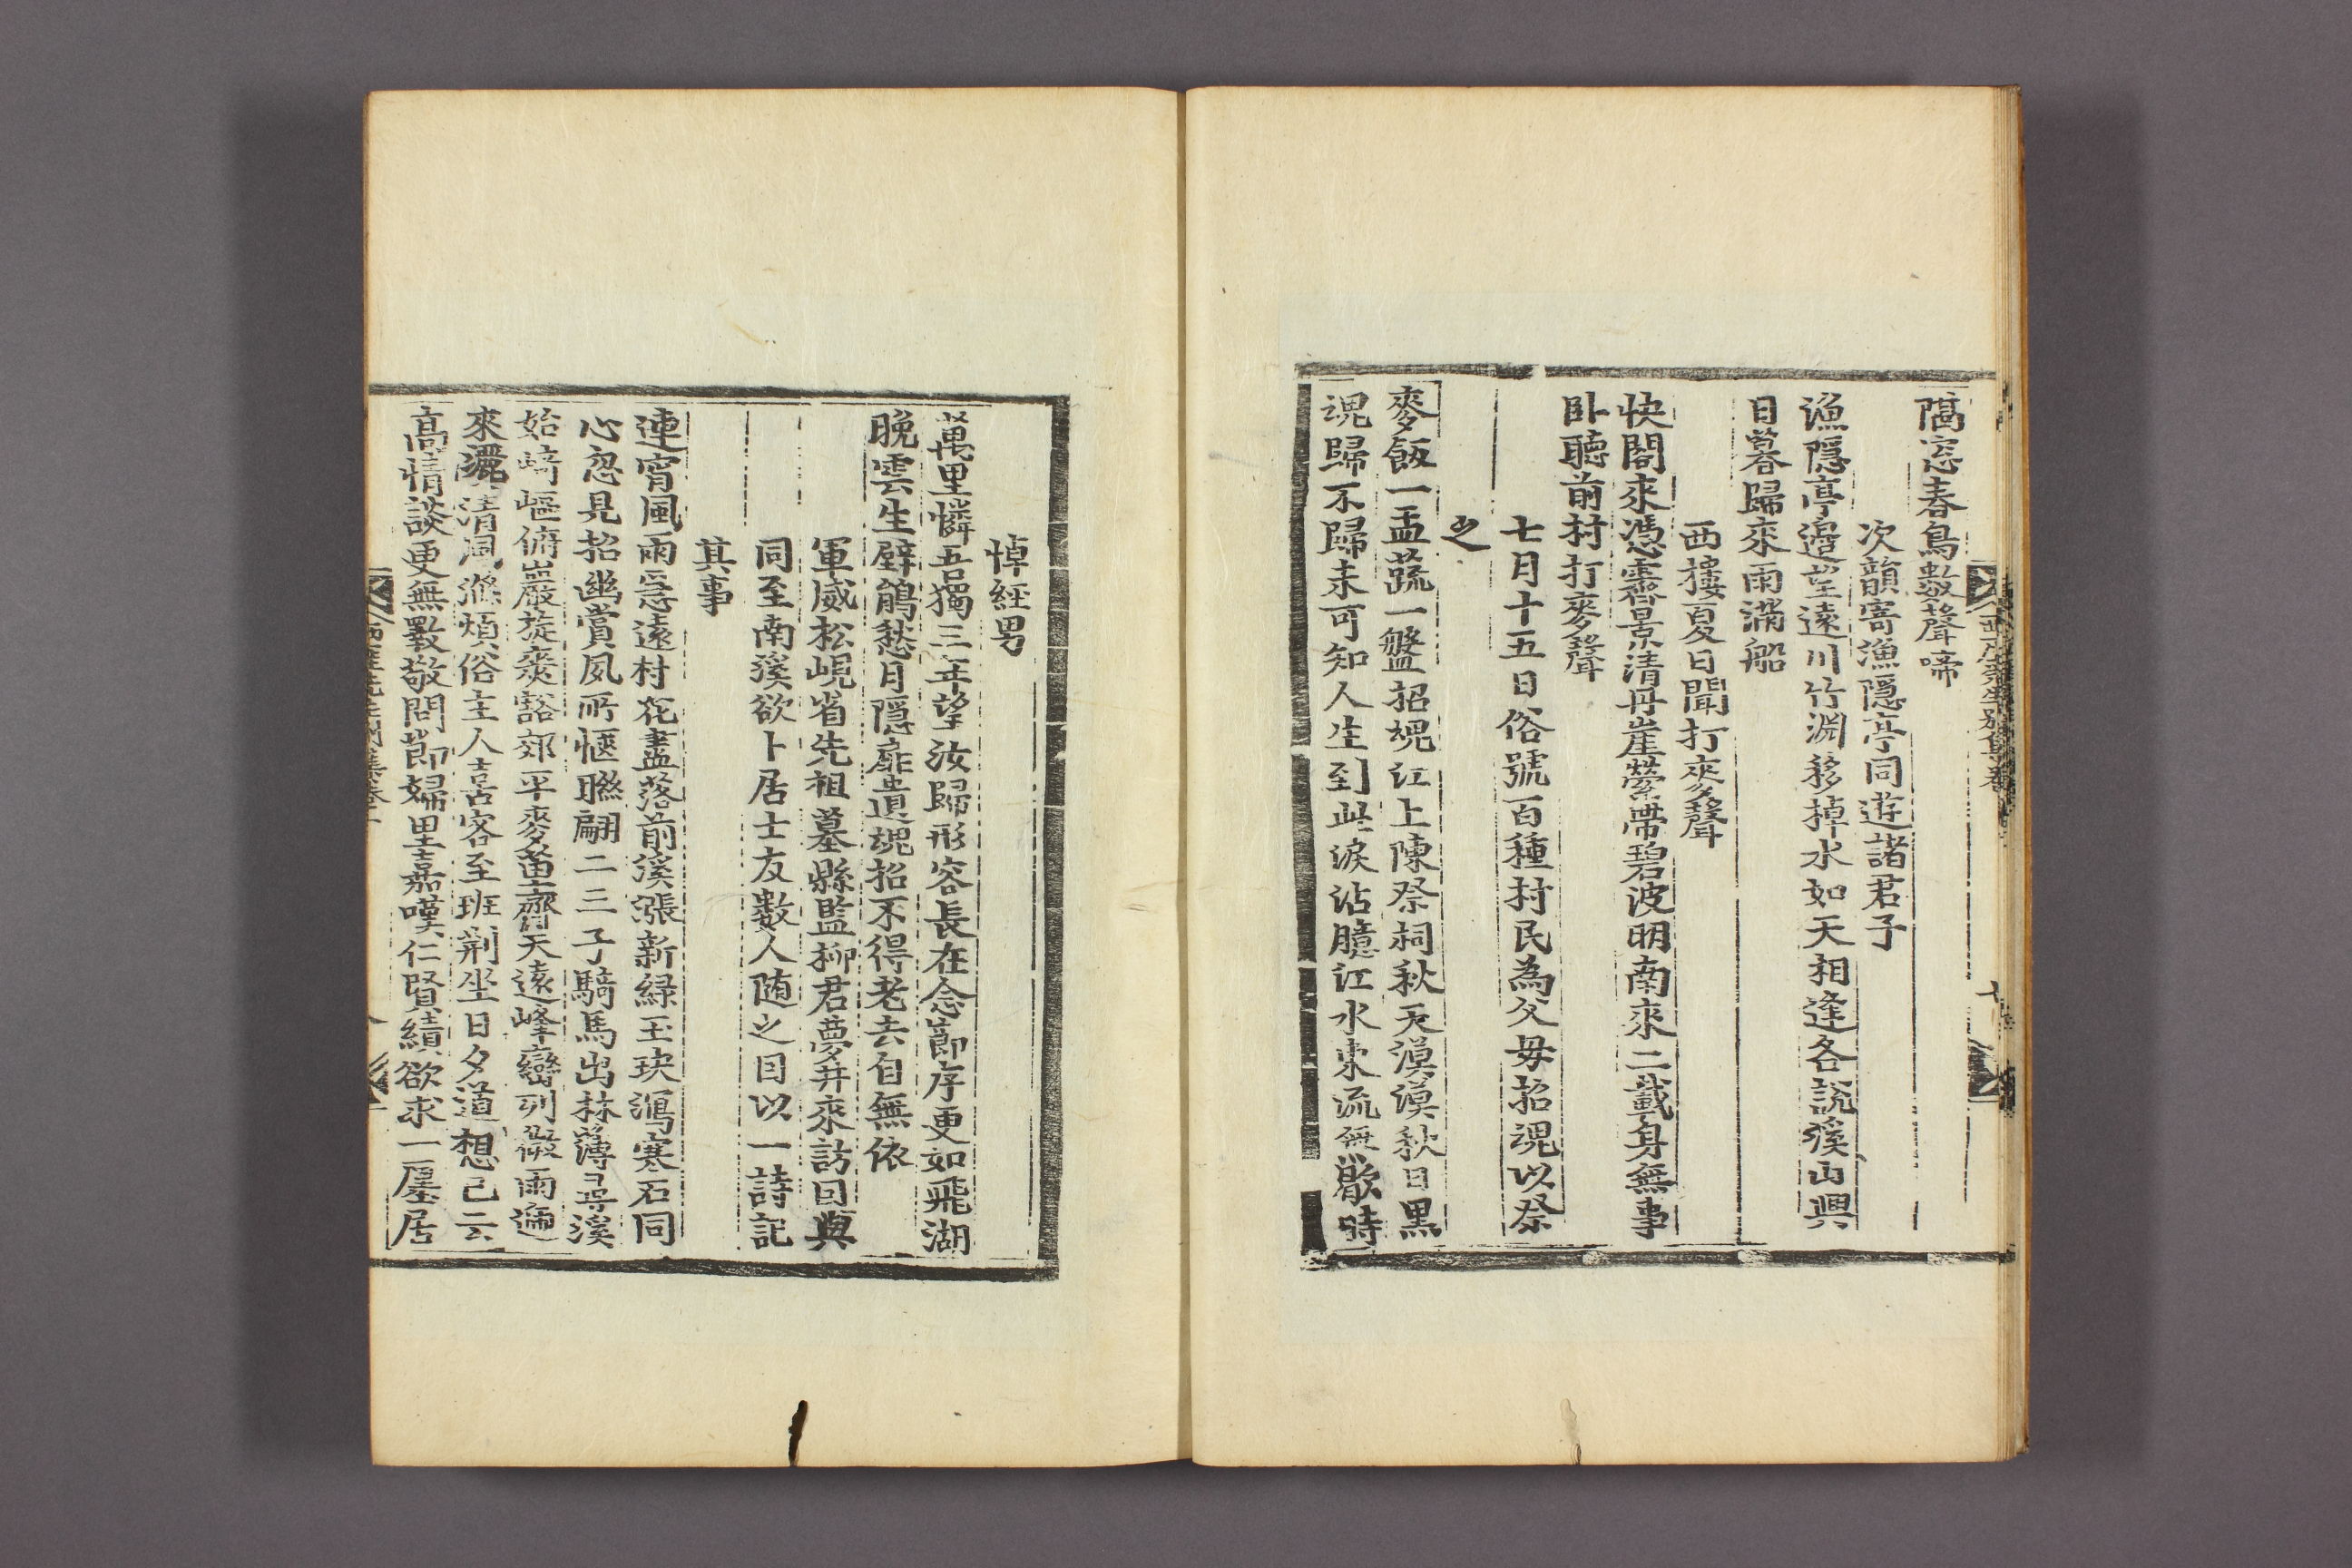 隔窓春鳥數聲啼
次韻寄漁隱亭同遊諸君子
漁隱亭邉望遠川竹淵移掉水如天相逢各說溪山興
日暮歸來雨滿船
西樓夏日聞打麥聲
快閣來憑霽景清丹崖縈帶碧波明南來二載身無事
卧聽前村打麥聲
七月十五日俗號百種村民為父母招魂以祭
之
麥飯一盂蔬一盤招魂江上陳祭祠秋天漠漠秋日黑
魂歸不歸未可知人生到此淚沾臆江水東流無歇時
悼經男
萬里憐吾獨三年望汝歸形容長在念節序更如飛湖
晚雲生壁鵑愁月隱扉遺魂招不得老去自無依
軍威松峴省先祖墓縣監柳君夢井來訪曰與
同至南溪欲卜居士友數人随之目以一詩記
其事
連宵風雨急遠村花盡落前溪漲新緑玉玦瀉寒石同
心忽見招幽賞夙所愜聯翩二三子騎馬出林薄尋溪
始崎嶇俯巖旋奕豁郊平麥苗齊天遠峰巒列微雨適
來灑清風滌煩俗主人喜客至班荆坐日夕道想已云
高情談更無斁敬問節婦里嘉嘆仁賢績欲求一廛居